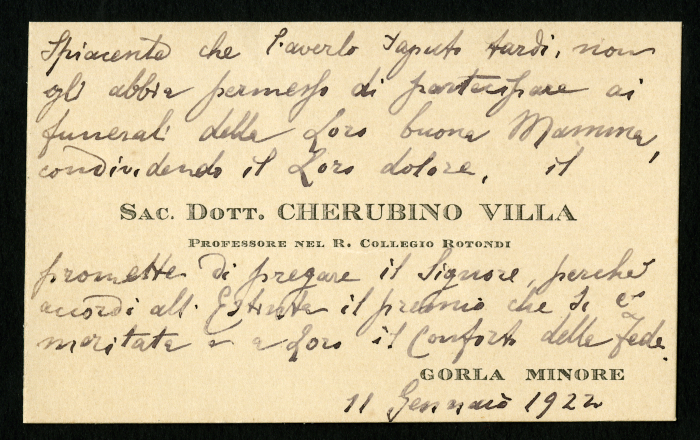 Spiacente che l'averlo saputo tardi, non
gli abbia permesso di partecipare ai
funerali della Loro buona Mamma,
condividendo il Loro dolore, il
SAC. DOTT. CHERUBINO VILLA
PROFESSORE NEL R. COLLEGIO ROTONDI
promette di pregare il Signore, perché
accordi all' Estinta il premio che si è
meritata e a Loro il Conforto della Fede.
GORLA MINORE
11 Gennaio 1922